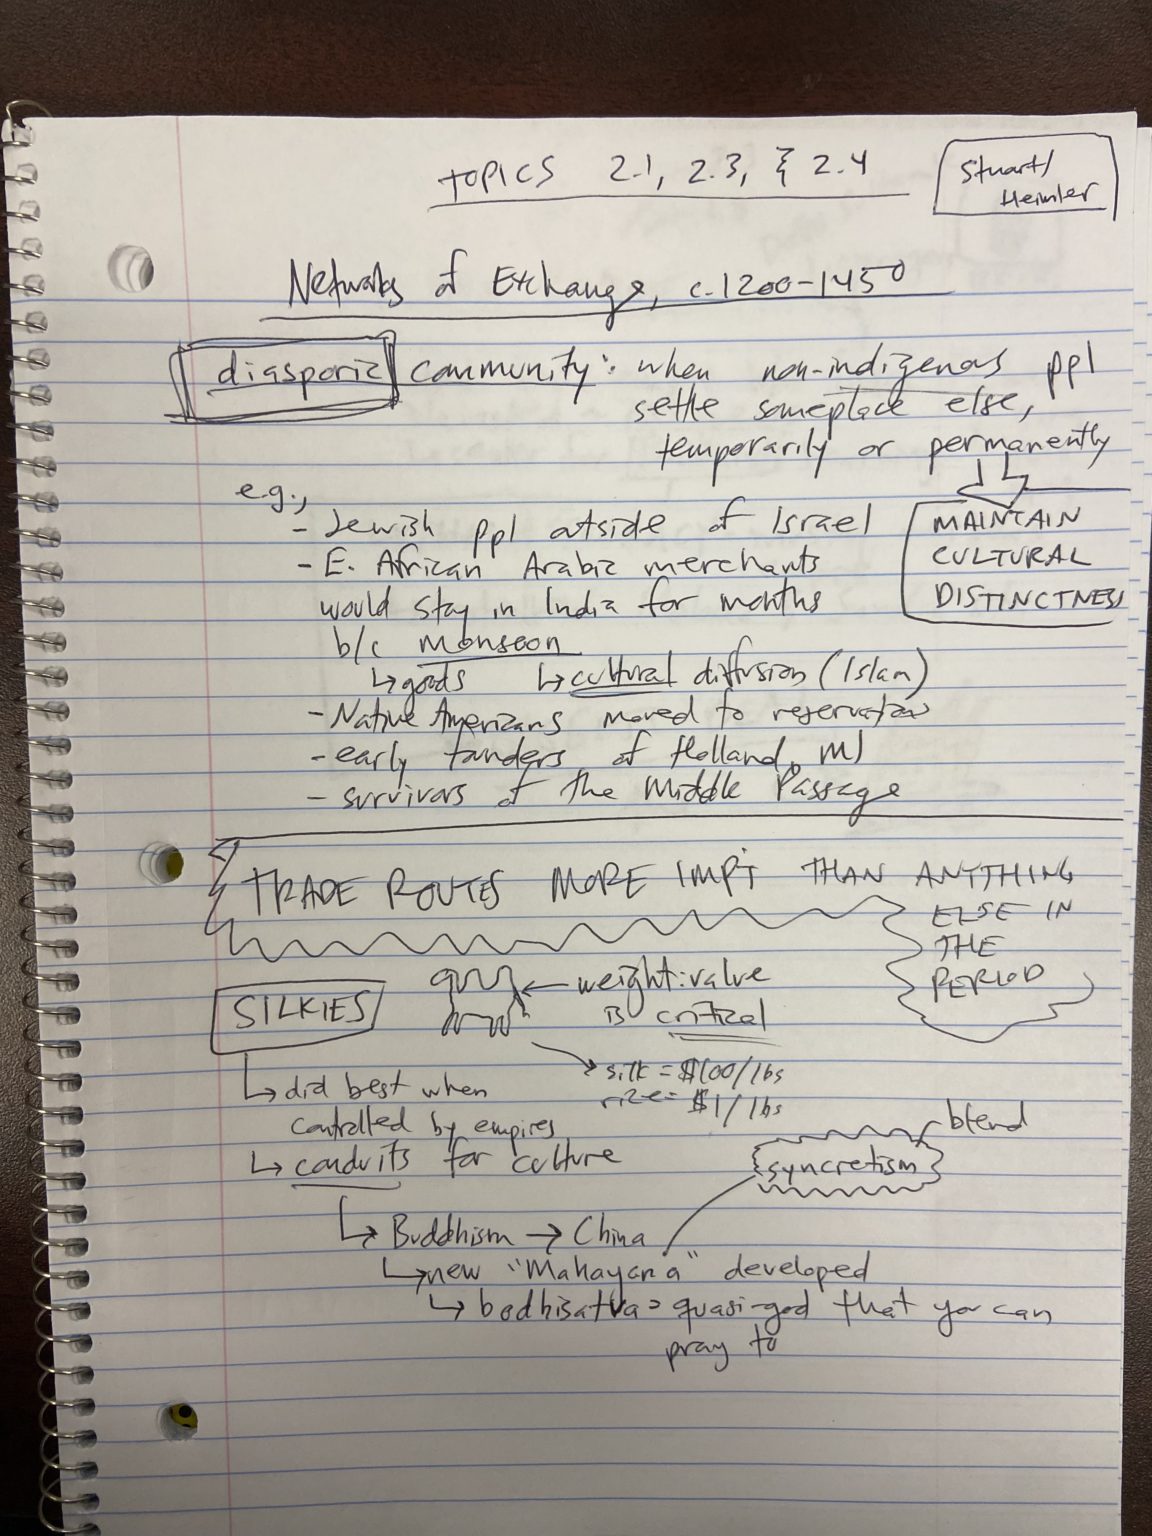 TOPICS 2.1, 2.3, & 2.4
Stuart/
Heimler
Networks of Exchange, c.1200-1450
diasporic community: when non-indigenous ppl
settle someplace else,
temporarily or permanently
MAINTAIN
CULTURAL
DISTINCTNESS
e.g.,
- Jewish ppl outside of Israel
- E. African Arabic merchants
would stay in India for months
b/c monsoon
↳ goods ↳ cultural diffusion (Islam)
- Native Americans moved to reservations
- early founders of Holland, MI
- survivors of the Middle Passage
TRADE ROUTES MORE IMPT THAN ANYTHING
ELSE IN
THE
PERIOD
SILKIES
← weight:value
is critical
→ silk = $100/lbs
rice = $1/lbs
↳ did best when
controlled by empires
↳ conduits for culture
blend
syncretism
↳ Buddhism → China
↳ new "Mahayana" developed
↳ bodhisatva = quasi-god that you can
pray to